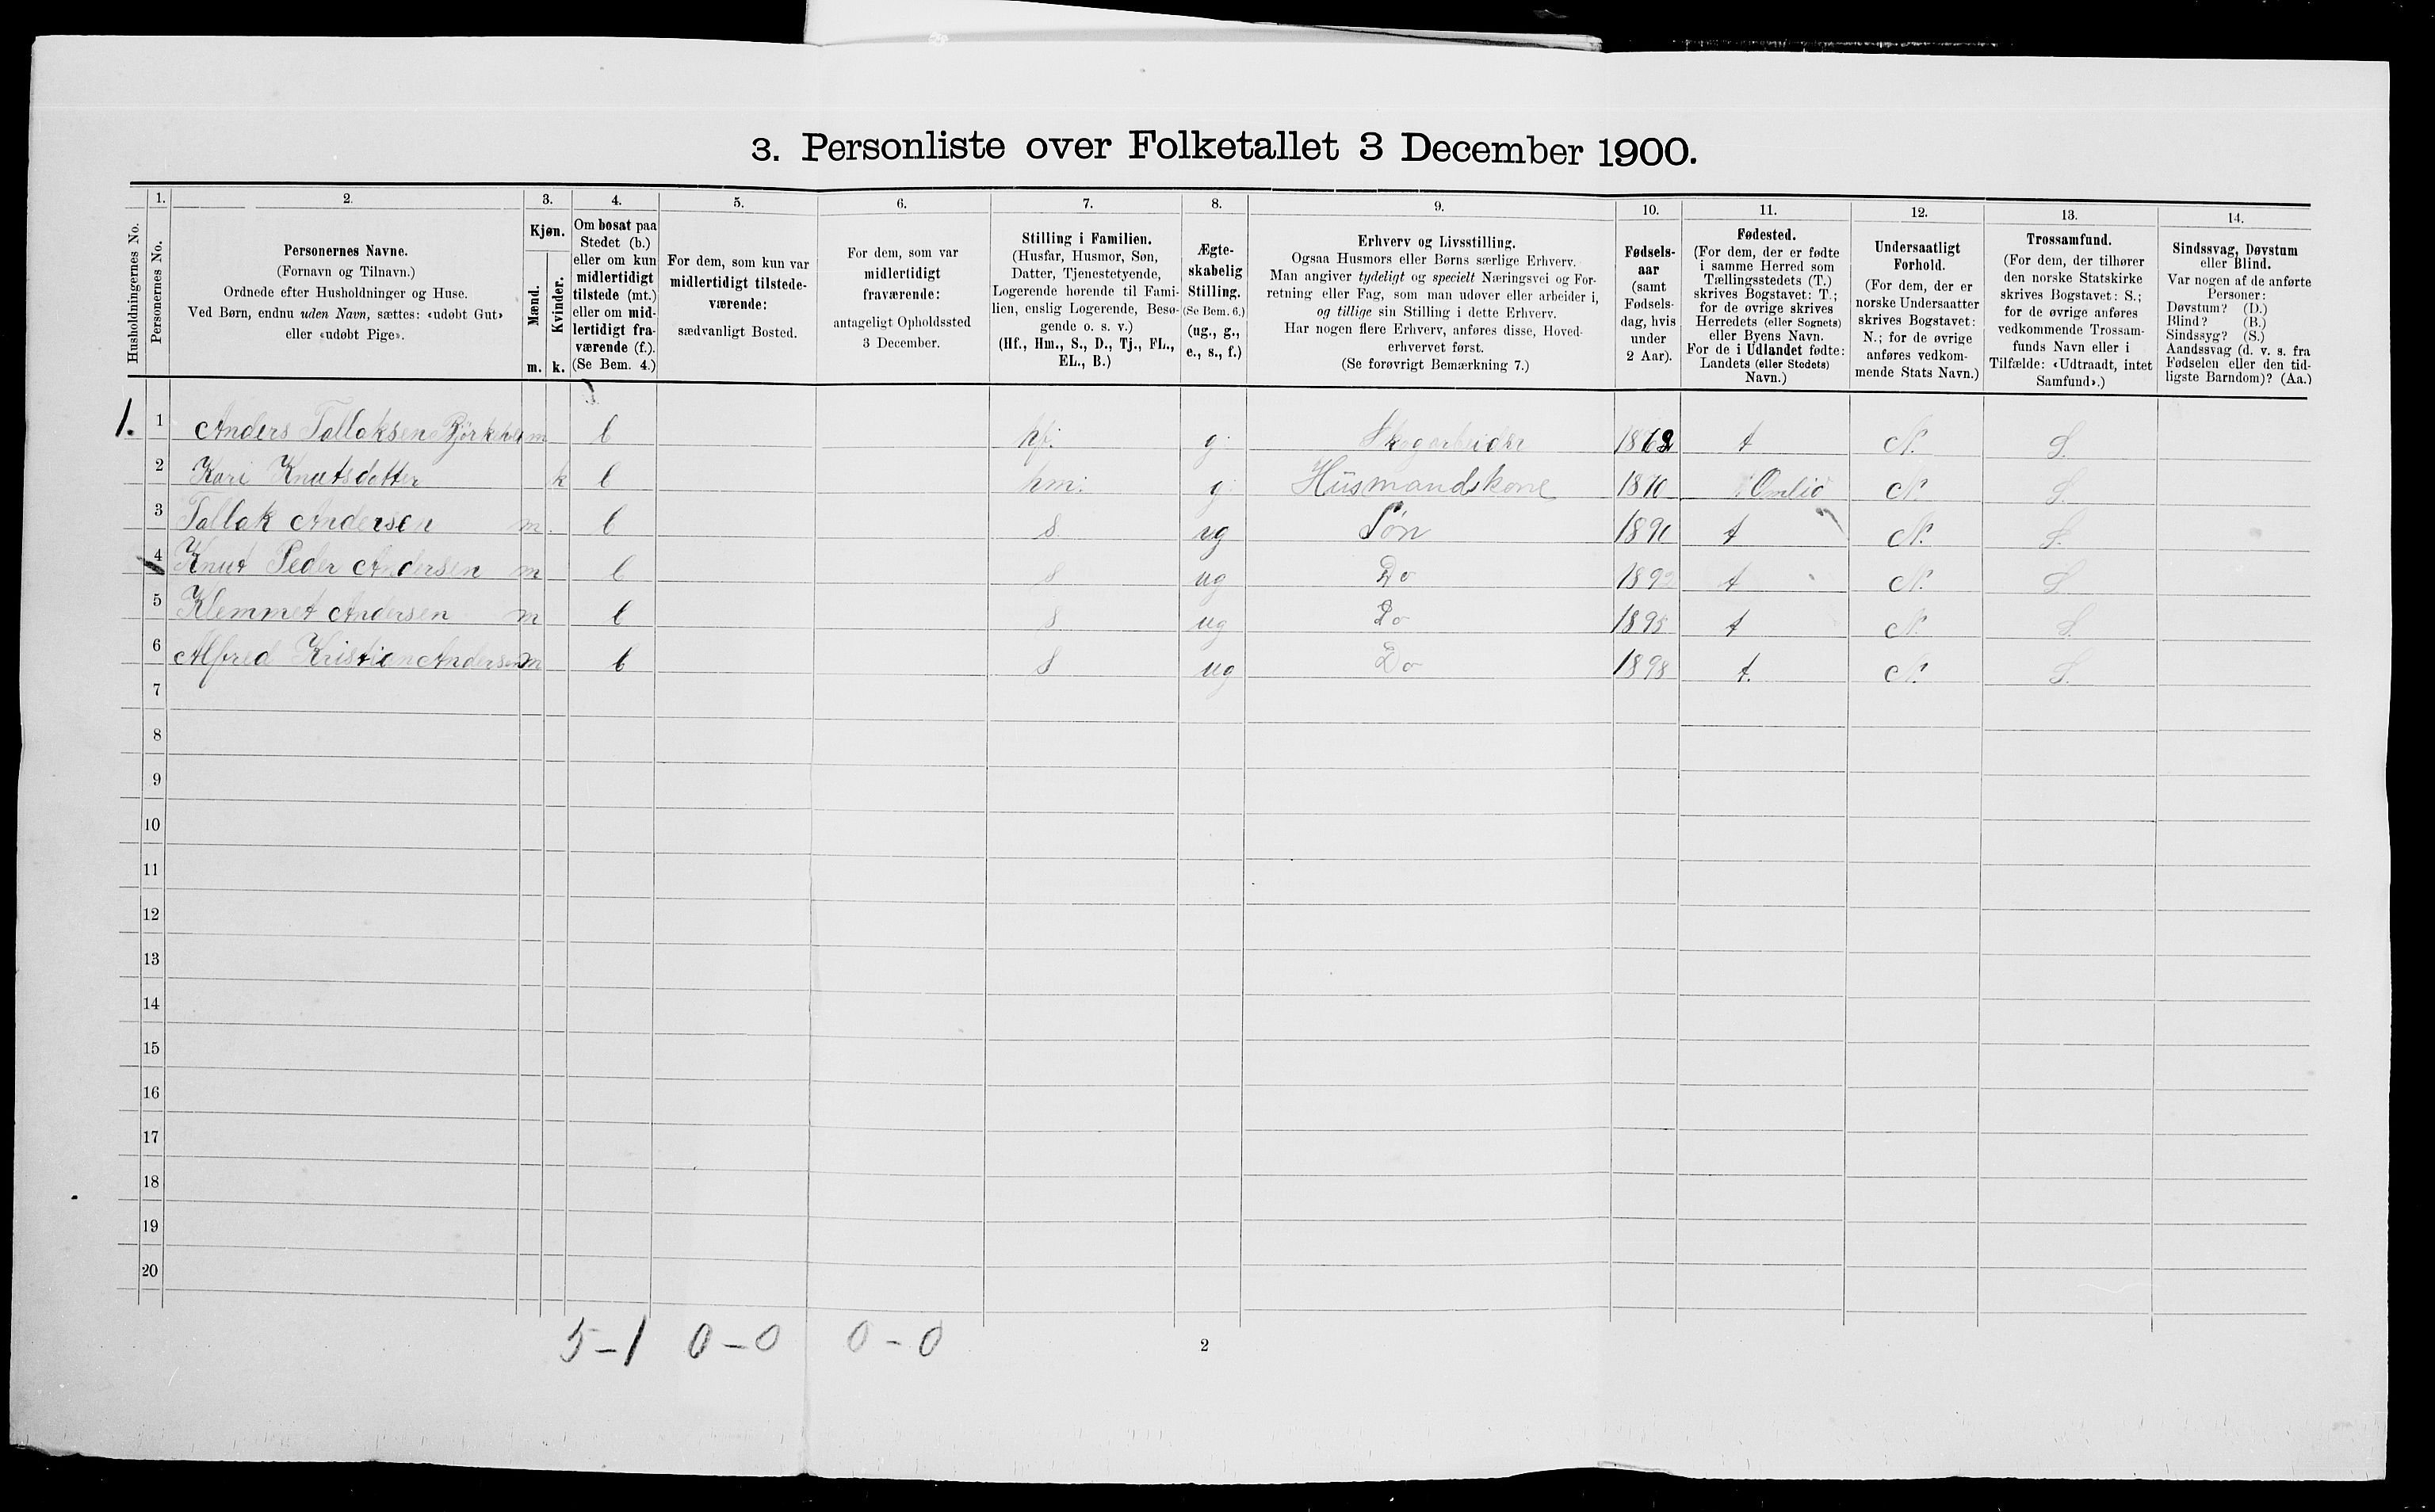 3. Personliste over Folketallet 3 December 1900.
Husholdningernes No.
1.
Personernes No.
2.
Personernes Navne.
(Fornavn og Tilnavn.)
Ordnede efter Husholdninger og Huse.
Ved Børn, endnu uden Navn, sættes: «udøbt Gut»
eller «udøbt Pige».
3.
Kjøn.
Mænd.
Kvinder.
m. k.
4.
Om bosat paa
Stedet (b.)
eller om kun
midlertidigt
tilstede (mt.)
eller om mid-
lertidigt fra-
værende (f.).
(Se Bem. 4.)
5.
For dem, som kun var
midlertidigt tilstede-
værende:
sædvanligt Bosted.
6.
For dem, som var
midlertidigt
fraværende:
antageligt Opholdssted
3 December.
7.
Stilling i Familien.
(Husfar, Husmor, Søn,
Datter, Tjenestetyende,
Logerende hørende til Fami-
lien, enslig Logerende, Besø-
gende o. s. v.)
(Hf., Hm., S., D., Tj., FL.,
EL., B.)
8.
Ægte-
skabelig
Stilling.
(Se Bem. 6.)
(ug., g.,
e., s., f.)
9.
Erhverv og Livsstilling.
Ogsaa Husmors eller Børns særlige Erhverv.
Man angiver tydeligt og specielt Næringsvei og For-
retning eller Fag, som man udøver eller arbeider i,
og tillige sin Stilling i dette Erhverv.
Har nogen flere Erhverv, anføres disse, Hoved-
erhvervet først.
(Se forøvrigt Bemærkning 7.)
10.
Fødsels-
aar
(samt
Fødsels-
dag, hvis
under
2 Aar).
11.
Fødested.
(For dem, der er fødte
i samme Herred som
Tællingsstedets (T.)
skrives Bogstavet: T.;
for de øvrige skrives
Herredets (eller Sognets)
eller Byens Navn.
For de i Udlandet fødte:
Landets (eller Stedets)
Navn.)
12.
Undersaatligt
Forhold.
(For dem, der er
norske Undersaatter
skrives Bogstavet:
N.; for de øvrige
anføres vedkom-
mende Stats Navn.)
13.
Trossamfund.
(For dem, der tilhører
den norske Statskirke
skrives Bogstavet: S.;
for de øvrige anføres
vedkommende Trossam-
funds Navn eller i
Tilfælde: «Udtraadt, intet
Samfund».)
14.
Sindssvag, Døvstum
eller Blind.
Var nogen af de anførte
Personer:
Døvstum? (D.)
Blind? (B.)
Sindssyg? (S.)
Aandssvag (d. v. s. fra
Fødselen eller den tid-
ligste Barndom)? (Aa.)
1. 1 Anders Tallaksen m b hf. g. Skogarbeider t N. S.
2 Kari Knutsdatter k b hm. g. Husmandskone 1870 Omlid N. S.
3 Tallak Andersen m. b s ug Søn t N. S.
4 Knut Peder Andersen m b s ug Do 1892 t N. S.
5 Klemmet Andersen m b s ug Do 1895 t N. S.
6 Alfred Kristian Andersen m b s ug Do 1898 t. N. S.
7
8
9
10
11
12
13
14
15
16
17
18
19
20
5-1 0-0 0-0
2